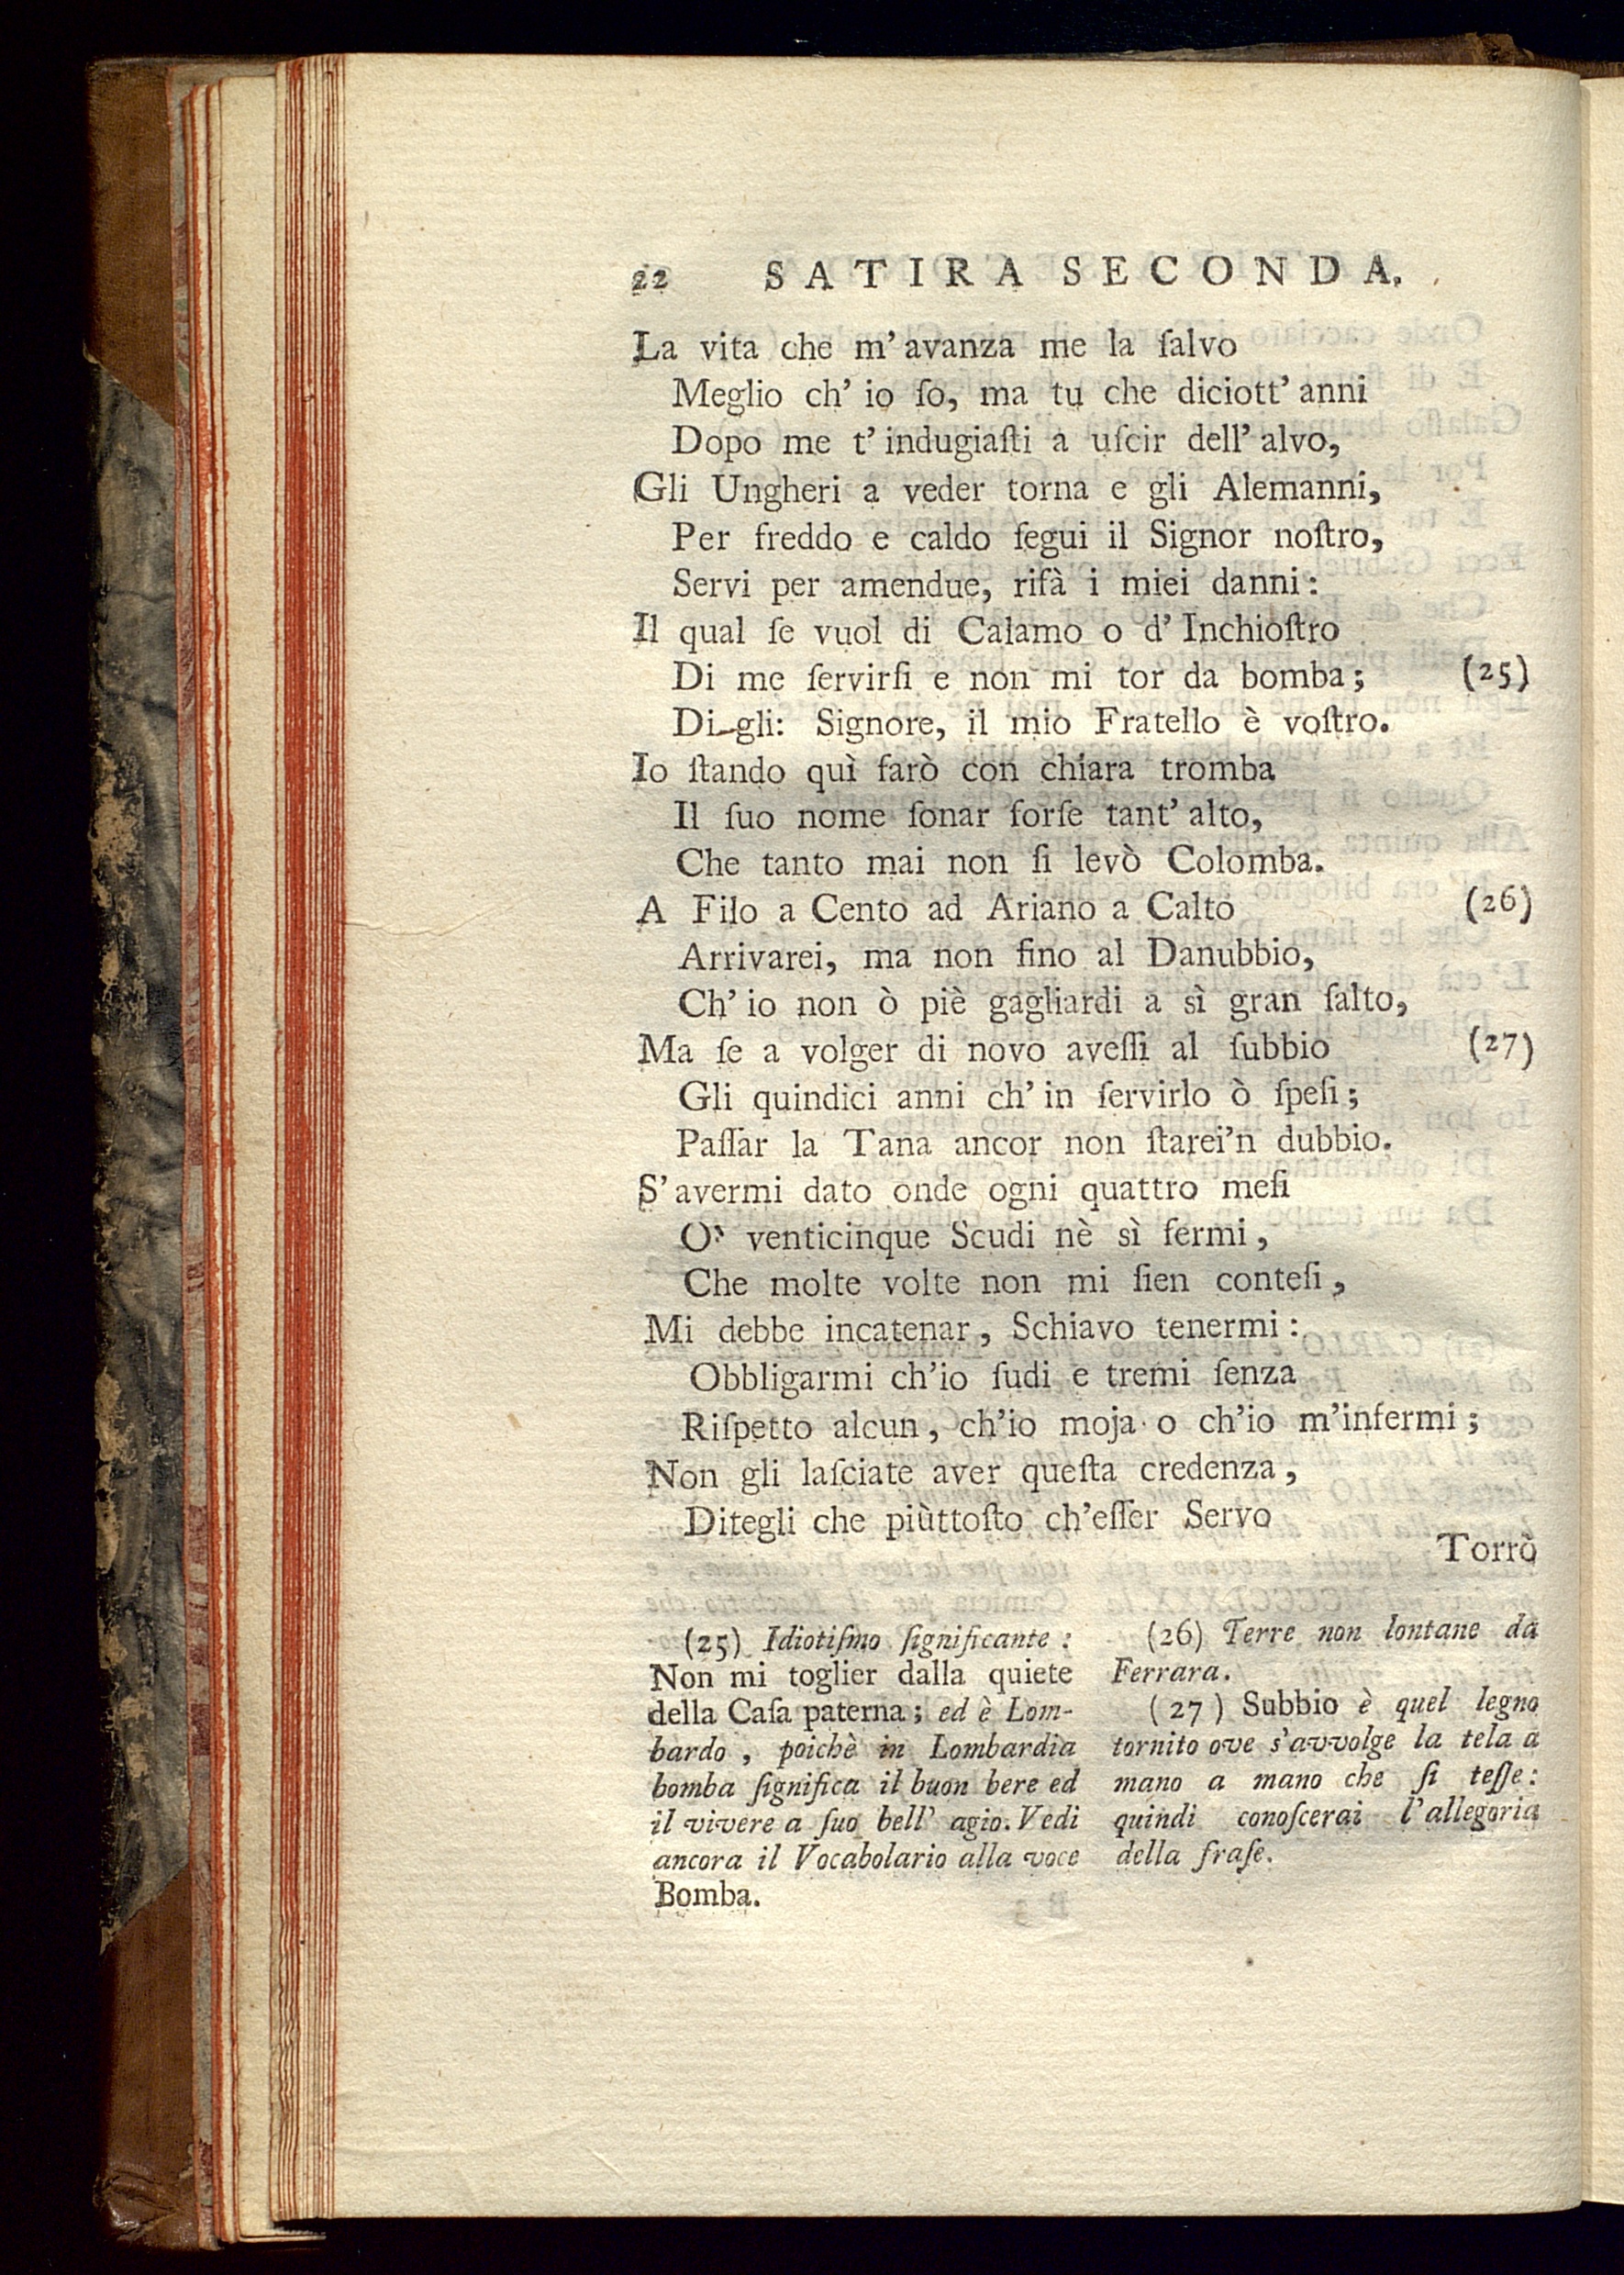 22 SATIRA SECONDA.
La vita che m'avanza me la ſalvo
Meglio ch' io ſo, ma tu che diciott' anni
Dopo me t' indugiaſti a uſcir dell' alvo,
Gli Ungheri a veder torna e gli Alemanni,
Per freddo e caldo ſegui il Signor noſtro,
Servi per amendue, rifà i miei danni:
Il qual ſe vuol di Calamo o d' Inchioſtro
Di me ſervirſi e non mi tor da bomba; (25)
Di-gli: Signore, il mio Fratello è voſtro.
Io ſtando quì farò con chiara tromba
Il ſuo nome ſonar forſe tant' alto,
Che tanto mai non ſi levò Colomba.
A Filo a Cento ad Ariano a Calto (26)
Arrivarei, ma non fino al Danubbio,
Ch' io non ò piè gagliardi a sì gran ſalto,
Ma ſe a volger di novo aveſſi al ſubbio (27)
Gli quindici anni ch' in ſervirlo ò ſpeſi;
Paſſar la Tana ancor non ſtarei'n dubbio.
S' avermi dato onde ogni quattro meſi
O' venticinque Scudi nè sì fermi,
Che molte volte non mi ſien conteſi,
Mi debbe incatenar, Schiavo tenermi:
Obbligarmi ch'io ſudi e tremi ſenza
Riſpetto alcun, ch'io moja o ch'io m'infermi;
Non gli laſciate aver queſta credenza,
Ditegli che piùttoſto ch'eſſer Servo
Torrò
(25) Idiotiſmo ſignificante:
Non mi toglier dalla quiete
della Caſa paterna; ed è Lom-
bardo, poichè in Lombardia
bomba ſignifica il buon bere ed
il vivere a ſuo bell' agio. Vedi
ancora il Vocabolario alla voce
Bomba.
(26) Terre non lontane da
Ferrara.
(27) Subbio è quel legno
tornito ove s'avvolge la tela a
mano a mano che ſi teſſe:
quindi conoſcerai l'allegoria
della fraſe.